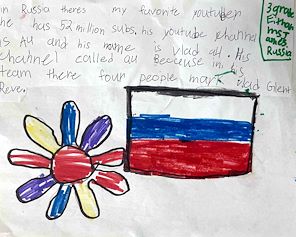 in Russia theres my favorite youtuber
he has 52 million subs. his youtube channel
is A4 and his name is Vlad a4. His
channel called a4 Because in his
team there four people may k Vlad Glent
Reve.
3 grade
mst
Russia